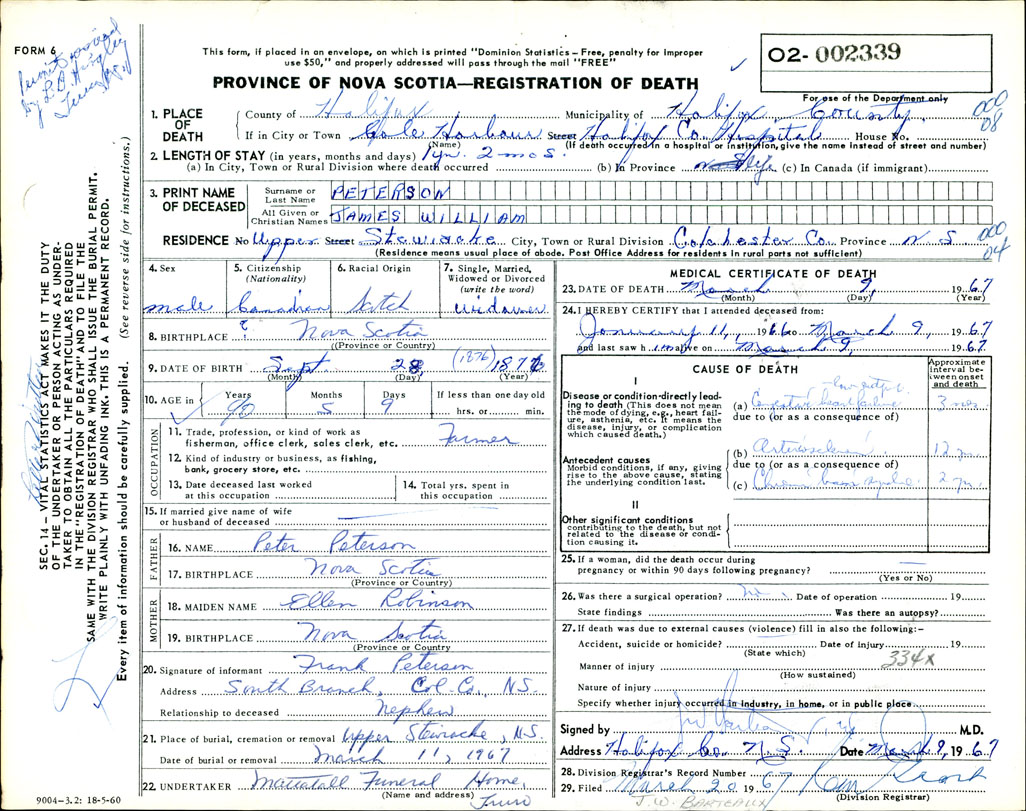 FORM 6
This form, if placed in an envelope, on which is printed "Dominion Statistics – Free, penalty for improper
use $50," and properly addressed will pass through the mail "FREE"
PROVINCE OF NOVA SCOTIA—REGISTRATION OF DEATH
02- 002339
For use of the Department only
1. PLACE OF DEATH
County of Halifax Municipality of Halifax County
If in City or Town Cole Harbour Street Halifax Co. Hospital House No.
(Name) (If death occurred in a hospital or institution, give the name instead of street and number)
000
08
2. LENGTH OF STAY (in years, months and days) 1 yr. 2 mos.
(a) In City, Town or Rural Division where death occurred (b) In Province (c) In Canada (if immigrant)
3. PRINT NAME OF DECEASED
Surname or Last Name PETERSON
All Given or Christian Names JAMES WILLIAM
RESIDENCE No Upper Street Stewiacke City, Town or Rural Division Colchester Co. Province N S
(Residence means usual place of abode. Post Office Address for residents in rural parts not sufficient)
000
04
4. Sex
male
5. Citizenship
(Nationality)
Canadian
6. Racial Origin
Scotch
7. Single, Married,
Widowed or Divorced
(write the word)
widower
8. BIRTHPLACE Nova Scotia
(Province or Country)
9. DATE OF BIRTH Sept 28, (1876) 1876
(Month) (Day) (Year)
10. AGE in Years 90 Months 5 Days 9 If less than one day old
hrs. or min.
OCCUPATION
11. Trade, profession, or kind of work as
fisherman, office clerk, sales clerk, etc. Farmer
12. Kind of industry or business, as fishing,
bank, grocery store, etc.
13. Date deceased last worked
at this occupation
14. Total yrs. spent in
this occupation
15. If married give name of wife
or husband of deceased
FATHER
16. NAME Peter Peterson
17. BIRTHPLACE Nova Scotia
(Province or Country)
MOTHER
18. MAIDEN NAME Ellen Robinson
19. BIRTHPLACE Nova Scotia
(Province or Country)
20. Signature of informant Frank Peterson
Address South Branch, Col. Co., N.S.
Relationship to deceased Nephew
21. Place of burial, cremation or removal Upper Stewiacke, N.S.
Date of burial or removal March 11, 1967
22. UNDERTAKER Mattatall Funeral Home,
(Name and address) Truro
9004-3.2: 18-5-60
MEDICAL CERTIFICATE OF DEATH
23. DATE OF DEATH March 9, 1967
(Month) (Day) (Year)
24. I HEREBY CERTIFY that I attended deceased from:
January 11, 1966 to March 9, 1967
and last saw him alive on March 9, 1967
CAUSE OF DEATH
Approximate
interval be-
tween onset
and death
I
Disease or condition directly lead-
ing to death (This does not mean
the mode of dying, e.g., heart fail-
ure, asthenia, etc. It means the
disease, injury, or complication
which caused death.)
(a) Congestive heart failure 3 mos
due to (or as a consequence of)
Antecedent causes
Morbid conditions, if any, giving
rise to the above cause, stating
the underlying condition last.
(b) Arteriosclerosis 12 yrs
due to (or as a consequence of)
(c) Chronic brain syndrome 2 yrs.
II
Other significant conditions
contributing to the death, but not
related to the disease or condi-
tion causing it.
25. If a woman, did the death occur during
pregnancy or within 90 days following pregnancy?
(Yes or No)
26. Was there a surgical operation? no Date of operation 19
State findings Was there an autopsy?
27. If death was due to external causes (violence) fill in also the following:–
Accident, suicide or homicide? Date of injury 19
(State which)
334x
Manner of injury
(How sustained)
Nature of injury
Specify whether injury occurred in industry, in home, or in public place
Signed by M.D.
Address Halifax Co. N.S. Date March 9, 1967
28. Division Registrar's Record Number
29. Filed March 20 1967
(Division Registrar)
J. W. BARTEAUX
SEC. 14 – VITAL STATISTICS ACT MAKES IT THE DUTY
OF THE UNDERTAKER OR PERSON ACTING AS UNDER-
TAKER TO OBTAIN ALL THE PARTICULARS REQUIRED
IN THE "REGISTRATION OF DEATH" AND TO FILE THE
SAME WITH THE DIVISION REGISTRAR WHO SHALL ISSUE THE BURIAL PERMIT.
WRITE PLAINLY WITH UNFADING INK. THIS IS A PERMANENT RECORD.
Every item of information should be carefully supplied. (See reverse side for instructions.)